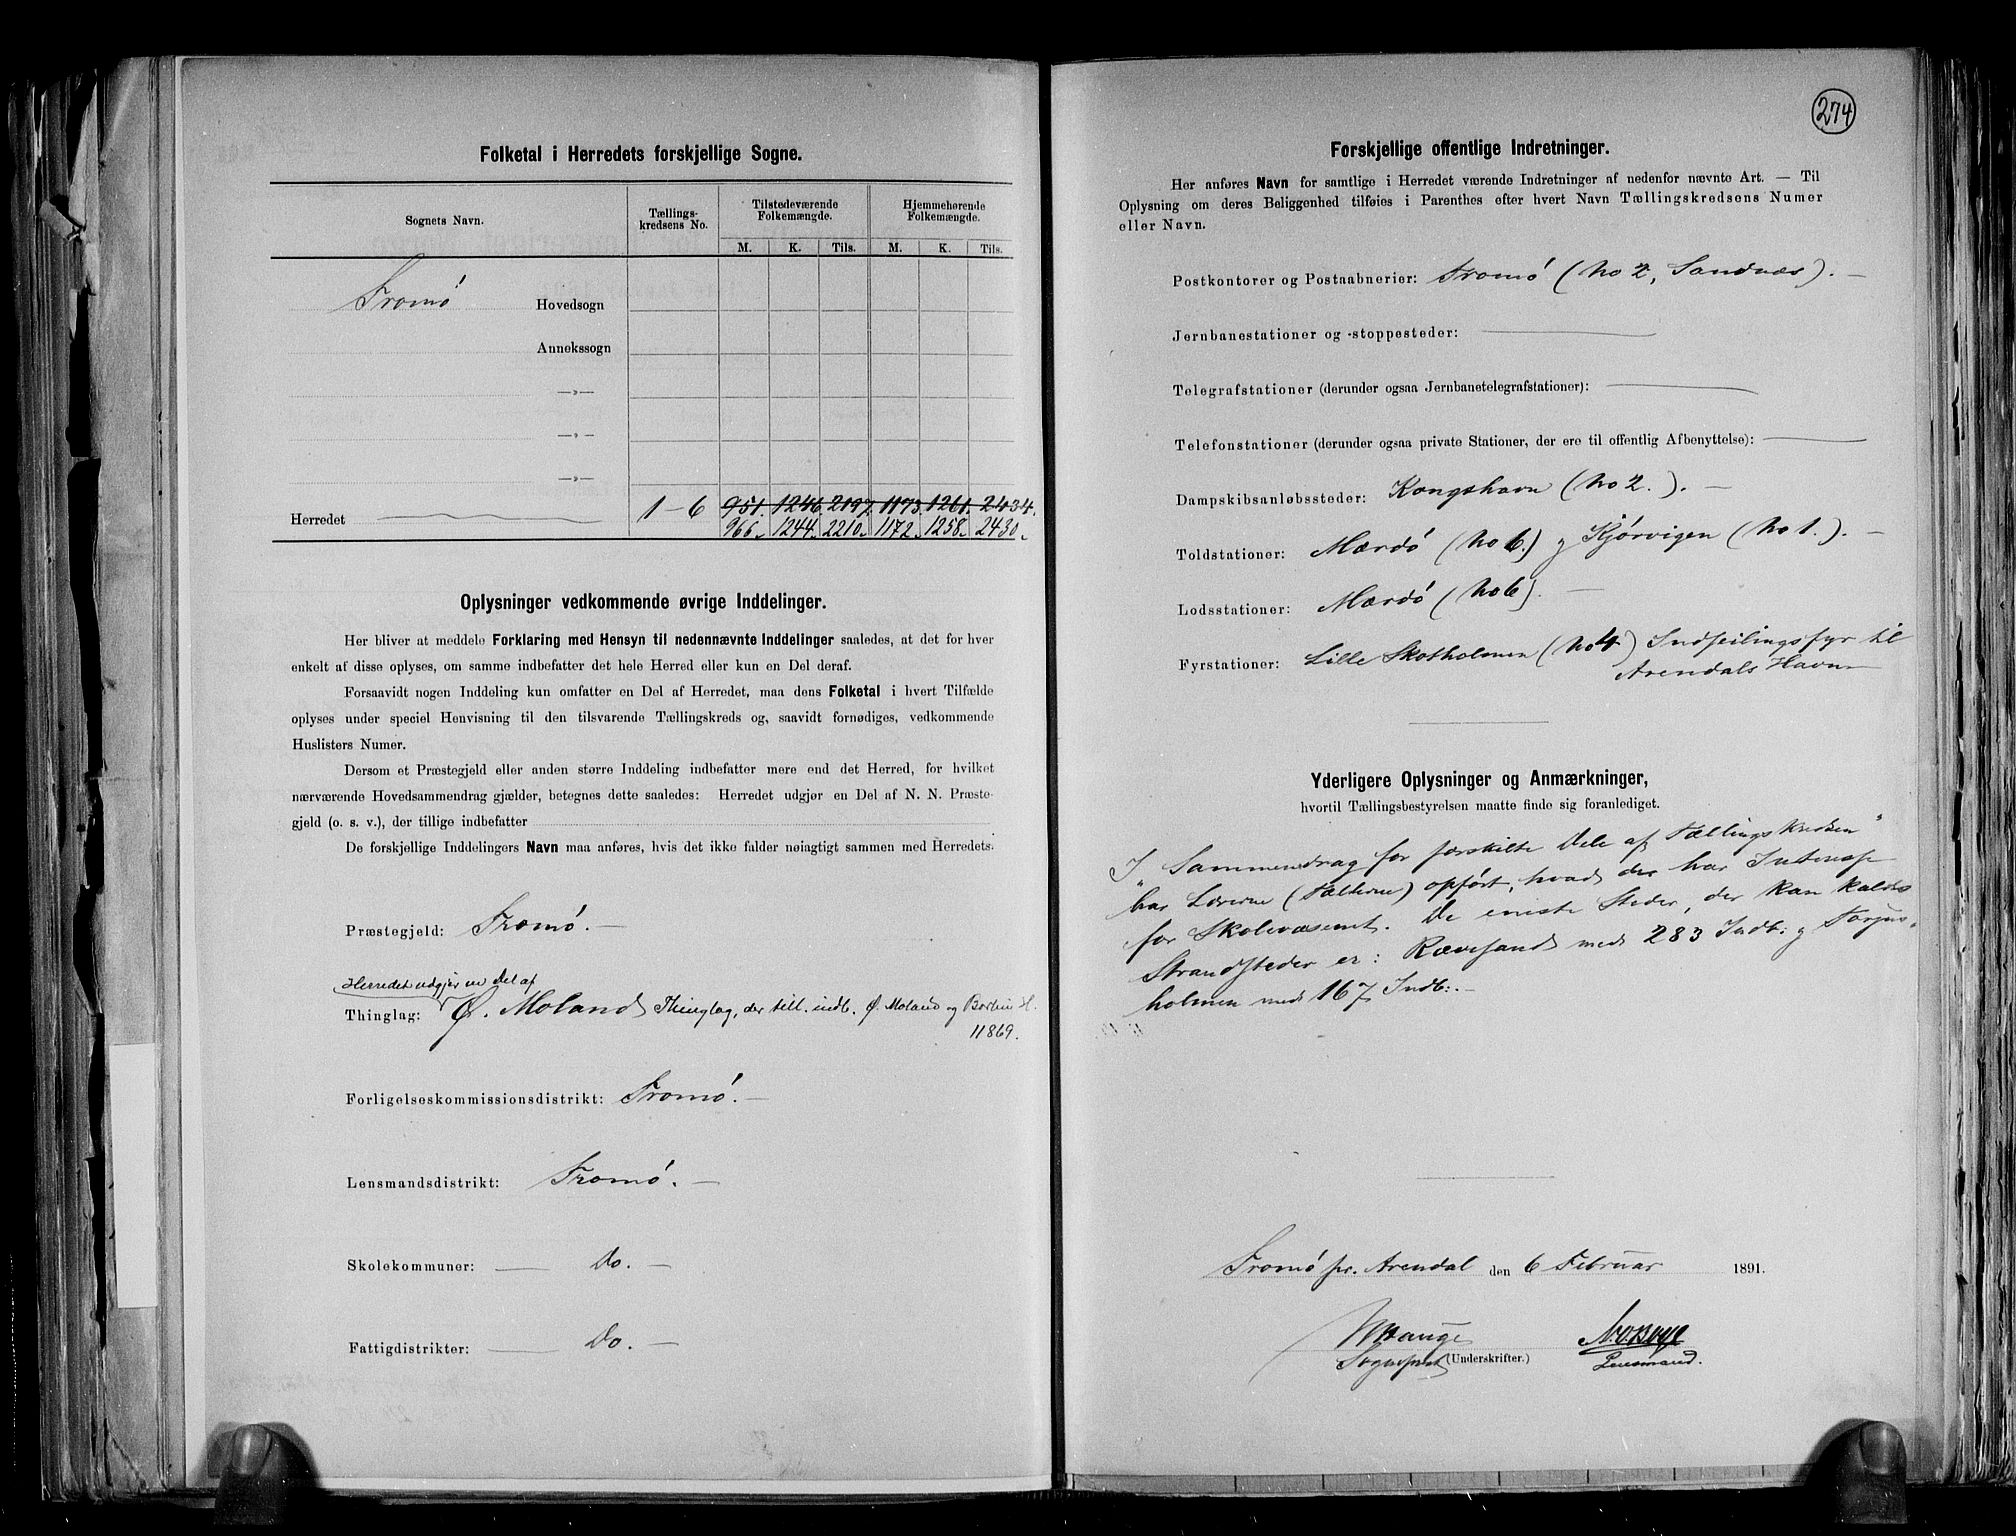 Folketal i Herredets forskjellige Sogne.
Sognets Navn.
Tællings-
kredsens No.
Tilstedeværende
Folkemængde.
Hjemmehørende
Folkemængde.
M. K. Tils. M. K. Tils.
Tromø Hovedsogn
Annekssogn
—„—
—„—
—„—
951. 1246. 2197. 1173. 1261. 2434.
Herredet 1-6 966. 1244. 2210. 1172. 1258. 2430.
Oplysninger vedkommende øvrige Inddelinger.
Her bliver at meddele Forklaring med Hensyn til nedennævnte Inddelinger saaledes, at det for hver
enkelt af disse oplyses, om samme indbefatter det hele Herred eller kun en Del deraf.
Forsaavidt nogen Inddeling kun omfatter en Del af Herredet, maa dens Folketal i hvert Tilfælde
oplyses under speciel Henvisning til den tilsvarende Tællingskreds og, saavidt fornødiges, vedkommende
Huslisters Numer.
Dersom et Præstegjeld eller anden større Inddeling indbefatter mere end det Herred, for hvilket
nærværende Hovedsammendrag gjælder, betegnes dette saaledes: Herredet udgjør en Del af N. N. Præste-
gjeld (o. s. v.), der tillige indbefatter
De forskjellige Inddelingers Navn maa anføres, hvis det ikke falder nøiagtigt sammen med Herredets.
Præstegjeld: Tromø.—
Herredet udgjør en Del af
Thinglag: Ø. Moland Thinglag, der till. indb. Ø. Moland og
11869.
Forligelseskommissionsdistrikt: Tromø.—
Lensmandsdistrikt: Tromø.—
Skolekommuner: — Do.—
Fattigdistrikter: — Do.—
274
Forskjellige offentlige Indretninger.
Her anføres Navn for samtlige i Herredet værende Indretninger af nedenfor nævnte Art. — Til
Oplysning om deres Beliggenhed tilføies i Parenthes efter hvert Navn Tællingskredsens Numer
eller Navn.
Postkontorer og Postaabnerier: Tromø (No 2, Sandnæs).—
Jernbanestationer og -stoppesteder: —
Telegrafstationer (derunder ogsaa Jernbanetelegrafstationer): —
Telefonstationer (derunder ogsaa private Stationer, der ere til offentlig Afbenyttelse): —
Dampskibsanløbssteder: Kongshavn (No 2.).—
Toldstationer: Mærdø (No 6.) og Kjørvigen (No 1.).—
Lodsstationer: Mærdø (No 6).—
Fyrstationer: Lille Skotholmen (No 4) Indseilingsfyr til
Arendals Havn
Yderligere Oplysninger og Anmærkninger,
hvortil Tællingsbestyrelsen maatte finde sig foranlediget.
I „Sammendrag for særskilte Dele af Tællingskredsen"
har Lærerne (Tællerne) opført, hvad der har Interesse
for Skolevæsenet. De eneste Steder, der kan kaldes
Strandsteder er: Rævesand med 283 Indb: og Torjus-
holmen med 167 Indb:.—
Tromø pr. Arendal den 6 Februar 1891.
Hauge
Sognepræst (Underskrifter.) Lensmand.